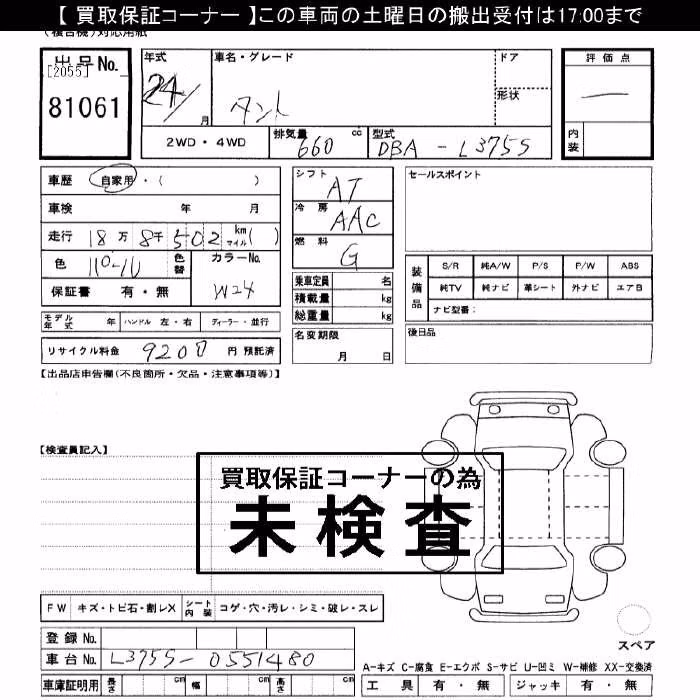 【 買取保証コーナー 】この車両の土曜日の搬出受付は17:00まで
(複合機)対応用紙
出品No.
[2055]
81061
年式
24/
月
車名・グレード
タント
ドア
形状
評価点
—
内装
2WD・4WD
排気量
660
cc
型式
DBA - L375S
車歴 自家用・( )
車検 年 月
走行 18万 8千 502 km マイル( )
色
色替
カラーNo.
W24
保証書 有・無
モデル年式 年 ハンドル 左・右 ディーラー・並行
リサイクル料金 9200 円 預託済
シフト
AT
冷房
AAC
燃料
G
乗車定員 名
積載量 kg
総重量 kg
名変期限
月 日
セールスポイント
装備品
S/R 純A/W P/S P/W ABS
純TV 純ナビ 革シート 外ナビ エアB
ナビ型番:
後日品
【出品店申告欄(不良箇所・欠品・注意事項等)】
【検査員記入】
買取保証コーナーの為
未検査
FW キズ・トビ石・割レX シート内装 コゲ・穴・汚レ・シミ・破レ・スレ
登録No.
車台No. L375S-0551480
車庫証明用 長さ cm 幅 cm 高さ cm
スペア
A-キズ C-腐食 E-エクボ S-サビ U-凹ミ W-補修 XX-交換済
工具 有・無 ジャッキ 有・無